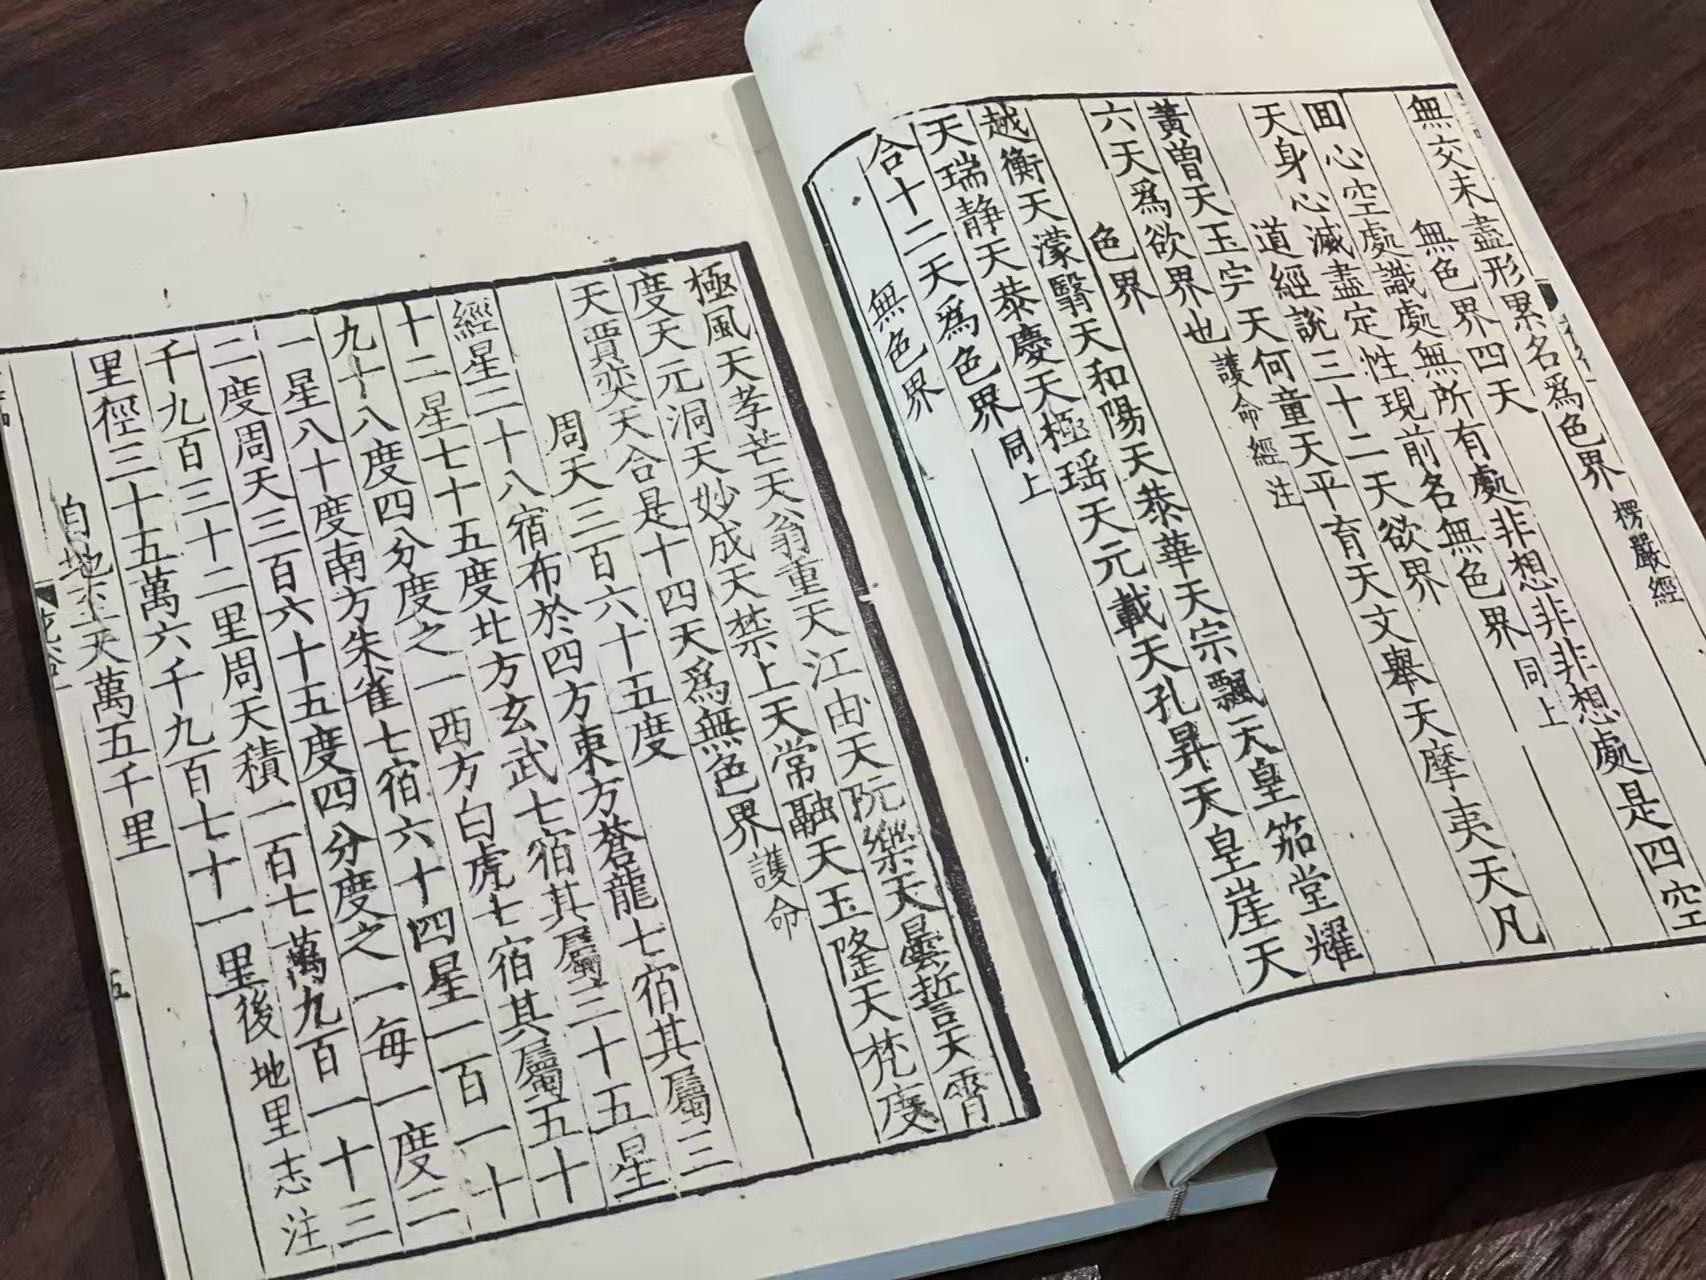 無交未盡形累名爲色界楞嚴經
無色界四天
囬心空處識處無所有處非想非非想處是四空
天身心滅盡定性現前名無色界同上
道經說三十二天欲界
黃曽天玉宇天何童天平育天文舉天摩夷天凡
六天爲欲界也護命經注
色界
越衡天濛翳天和陽天恭華天宗飄天皇笳堂耀
天瑞静天恭慶天極瑶天元載天孔昇天皇崖天
合十二天爲色界同上
無色界
極風天孝芒天翁重天江由天阮樂天曇誓天霄
度天元洞天妙成天禁上天常融天玉隆天梵度
天賈奕天合是十四天爲無色界護命
周天三百六十五度
經星二十八宿布於四方東方蒼龍七宿其屬三
十二星七十五度北方玄武七宿其屬三十五星
九十八度四分度之一西方白虎七宿其屬五十
一星八十度南方朱雀七宿六十四星一百一十
二度周天三百六十五度四分度之一每一度二
千九百三十二里周天積一百七萬九百一十三
里徑三十五萬六千九百七十一里後地里志注
自地至天萬五千里
五